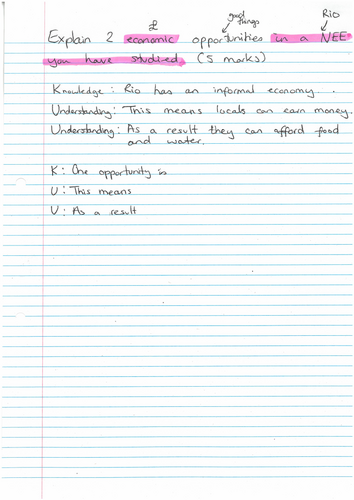 £ good things Rio
Explain 2 economic opportunities in a NEE
you have studied (5 marks)
Knowledge : Rio has an informal economy .
Understanding : This means locals can earn money.
Understanding : As a result they can afford food
and water.
K : One opportunity is
U : This means
U : As a result